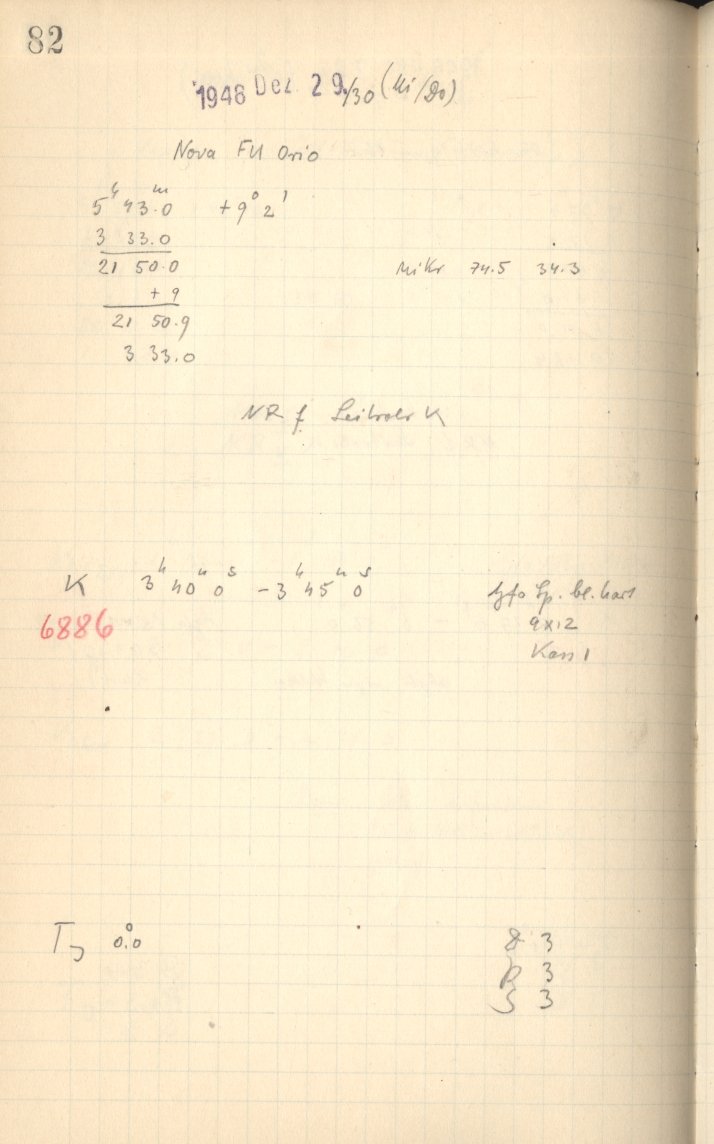 82
1948 Dez 29./30 (Mi/Do)
Nova FU Orio
5ʰ 43.0ᵐ +9° 2'
3 33.0
21 50.0 Mikr 74.5 34.3
+ 9
21 50.9
3 33.0
NR f Leitrohr K
K 3ʰ 40ᵐ 0ˢ - 3ʰ 45ᵐ 0ˢ Agfa Sp. bl. hart
6886 9x12
Kass 1
0.0
3
R 3
S 3